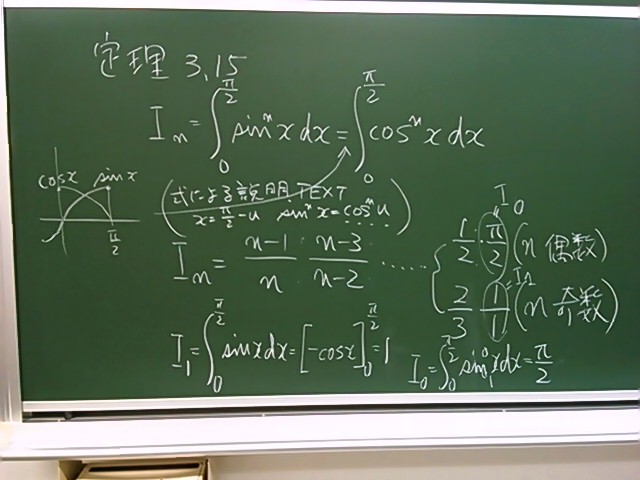 定理 3.15
I_n = ∫_0^{π/2} sin^n x dx = ∫_0^{π/2} cos^n x dx
cosx sinx
π/2
(式による説明 TEXT
x = π/2 - u sin^n x = cos^n u)
I_n = (n-1)/n · (n-3)/(n-2) ······ { 1/2 · π/2 (n 偶数)
I_0
2/3 · 1/1 (n 奇数)
= I_1
I_1 = ∫_0^{π/2} sinx dx = [-cosx]_0^{π/2} = 1
I_0 = ∫_0^{π/2} sin^0 x dx = π/2
1